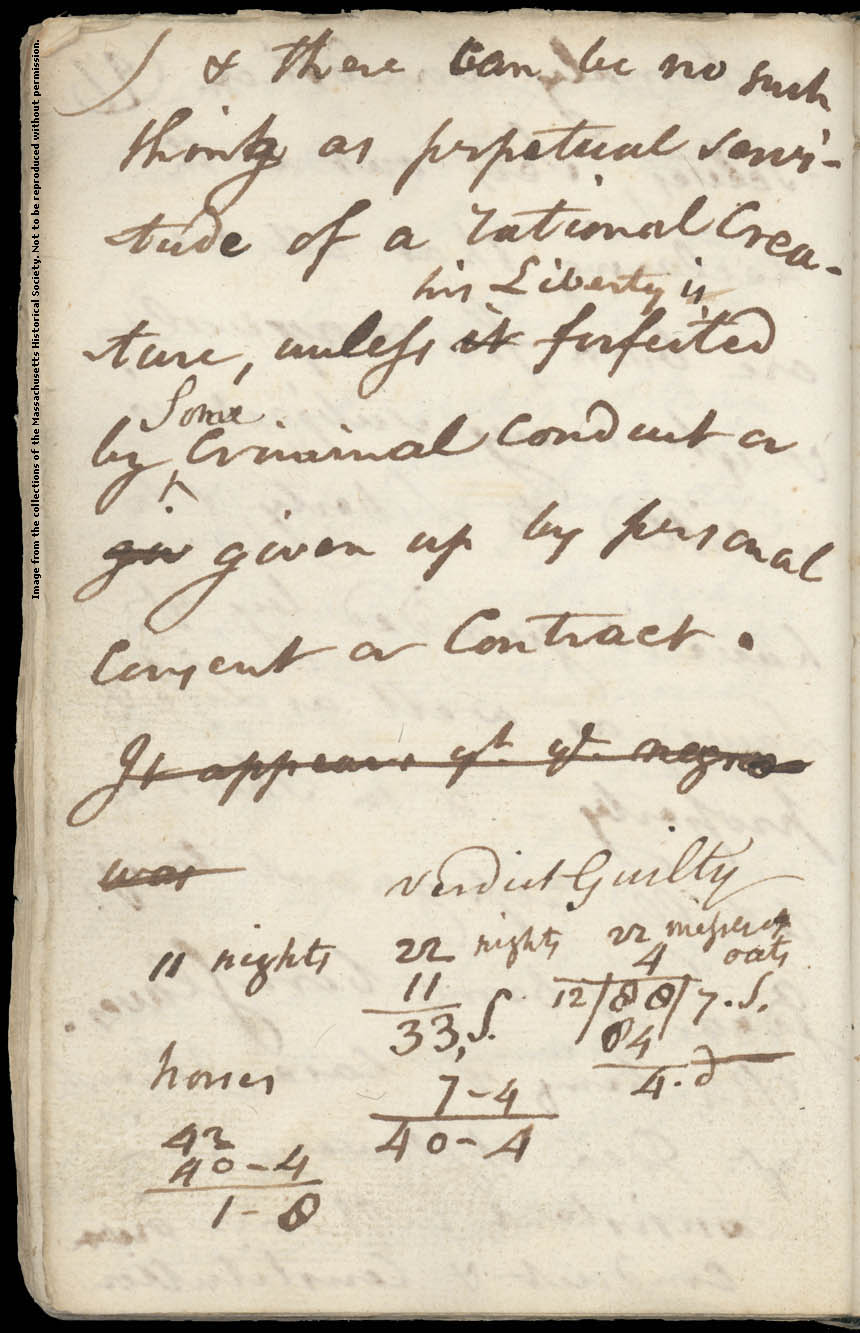 ) & there can be no such
thing as perpetual servi-
tude of a rational Crea-
his Liberty is
ture, unless it forfeited
Some
by ^ Criminal Conduct or
giv given up by personal
Consent or Contract.
It appears yt. ye. negro
was
verdict Guilty
11 nights 22 nights 22 messes of
4 oats
11 12/88/7.S.
33,S. 84
horses 7-4 4.d
42 40-4
40-4
1-8
Image from the collections of the Massachusetts Historical Society. Not to be reproduced without permission.